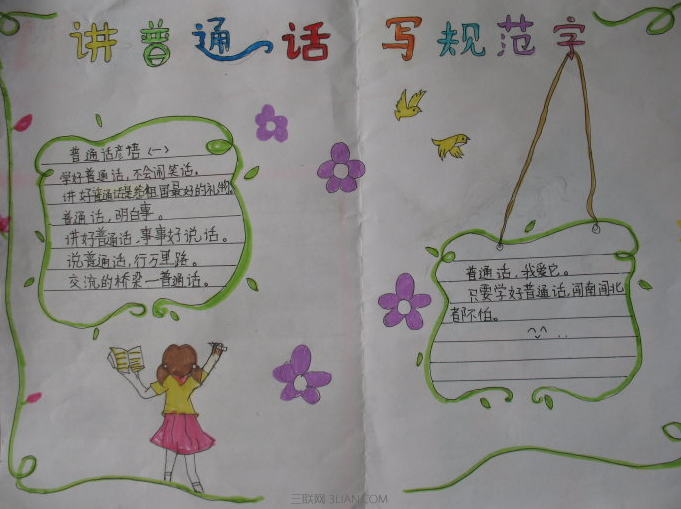 讲普通话 写规范字
普通话彦语〈一〉
学好普通话,不会闹笑话。
讲好普通话是给祖国最好的礼物。
普通话,明白事。
讲好普通话、事事好说话。
说普通话,行万里路。
交流的桥梁一普通话。
普通话,我爱它。
只要学好普通话,闯南闯北
都不怕。
三联网 3LIAN.COM